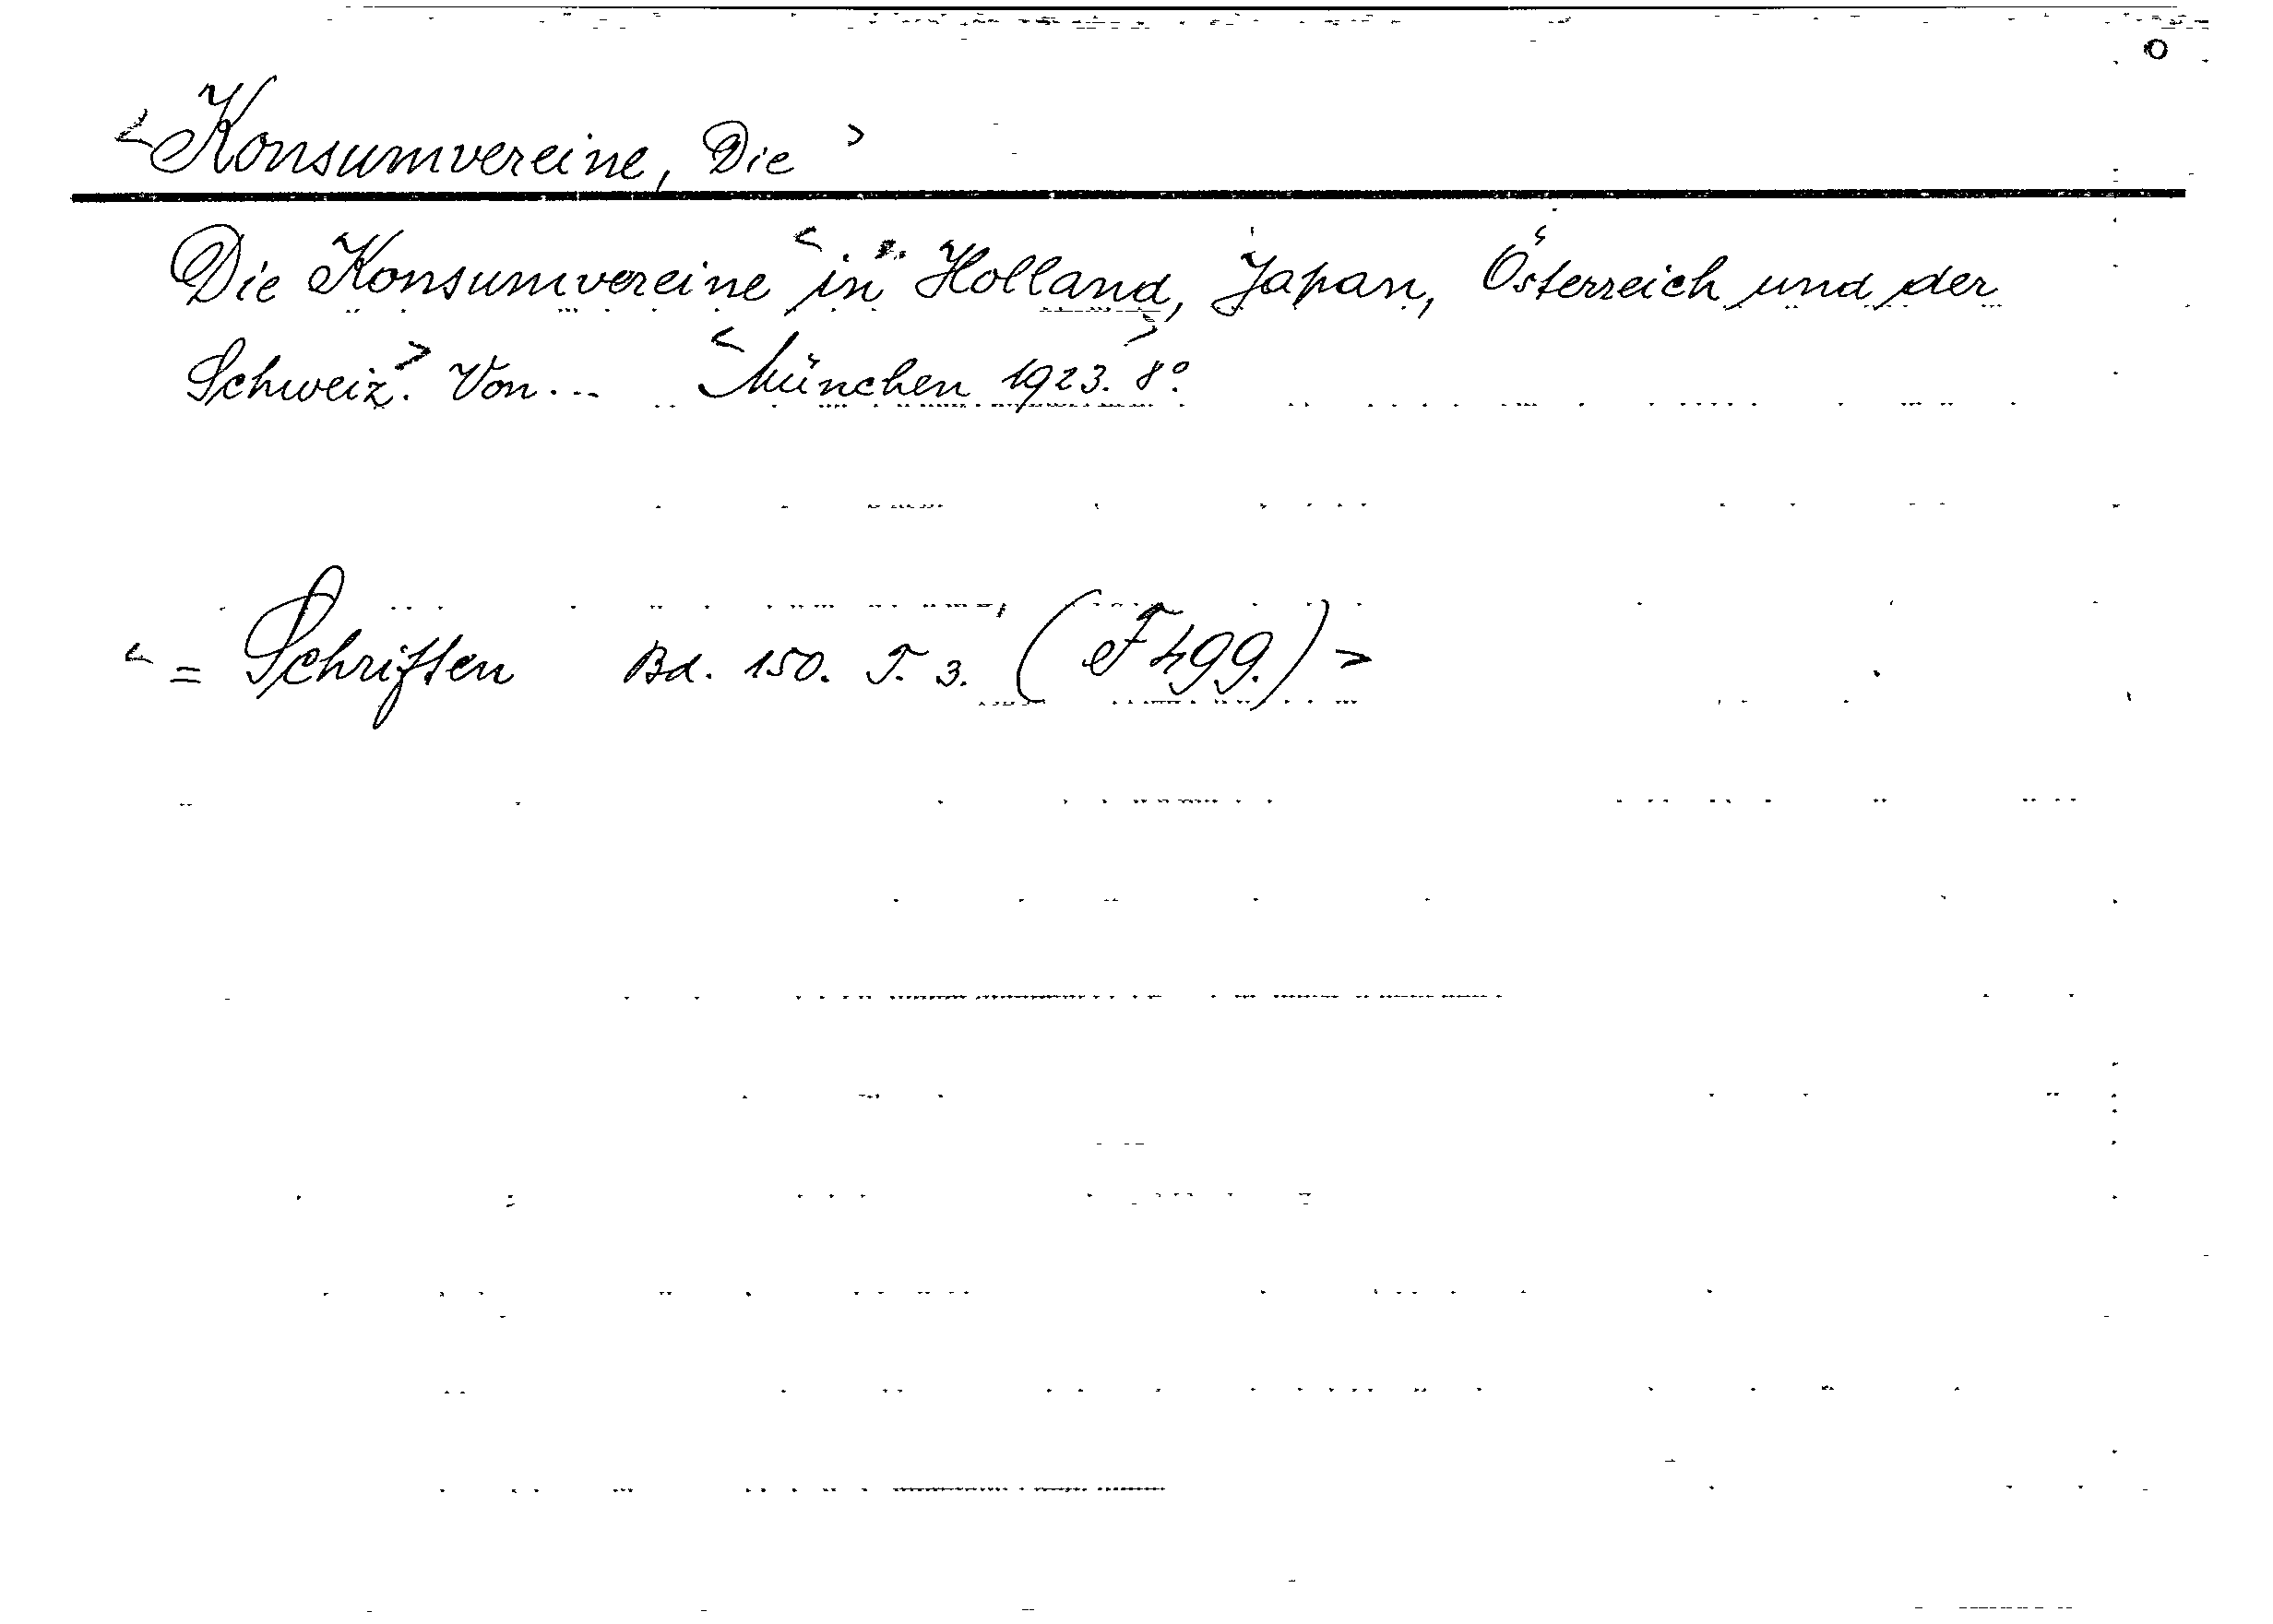 <Konsumvereine, Die>
Die Konsumvereine <in Holland, Japan, Österreich und der
Schweiz.> Von... <München 1923.> 8°.
<= Schriften Bd. 150. T. 3. (F 499.)>